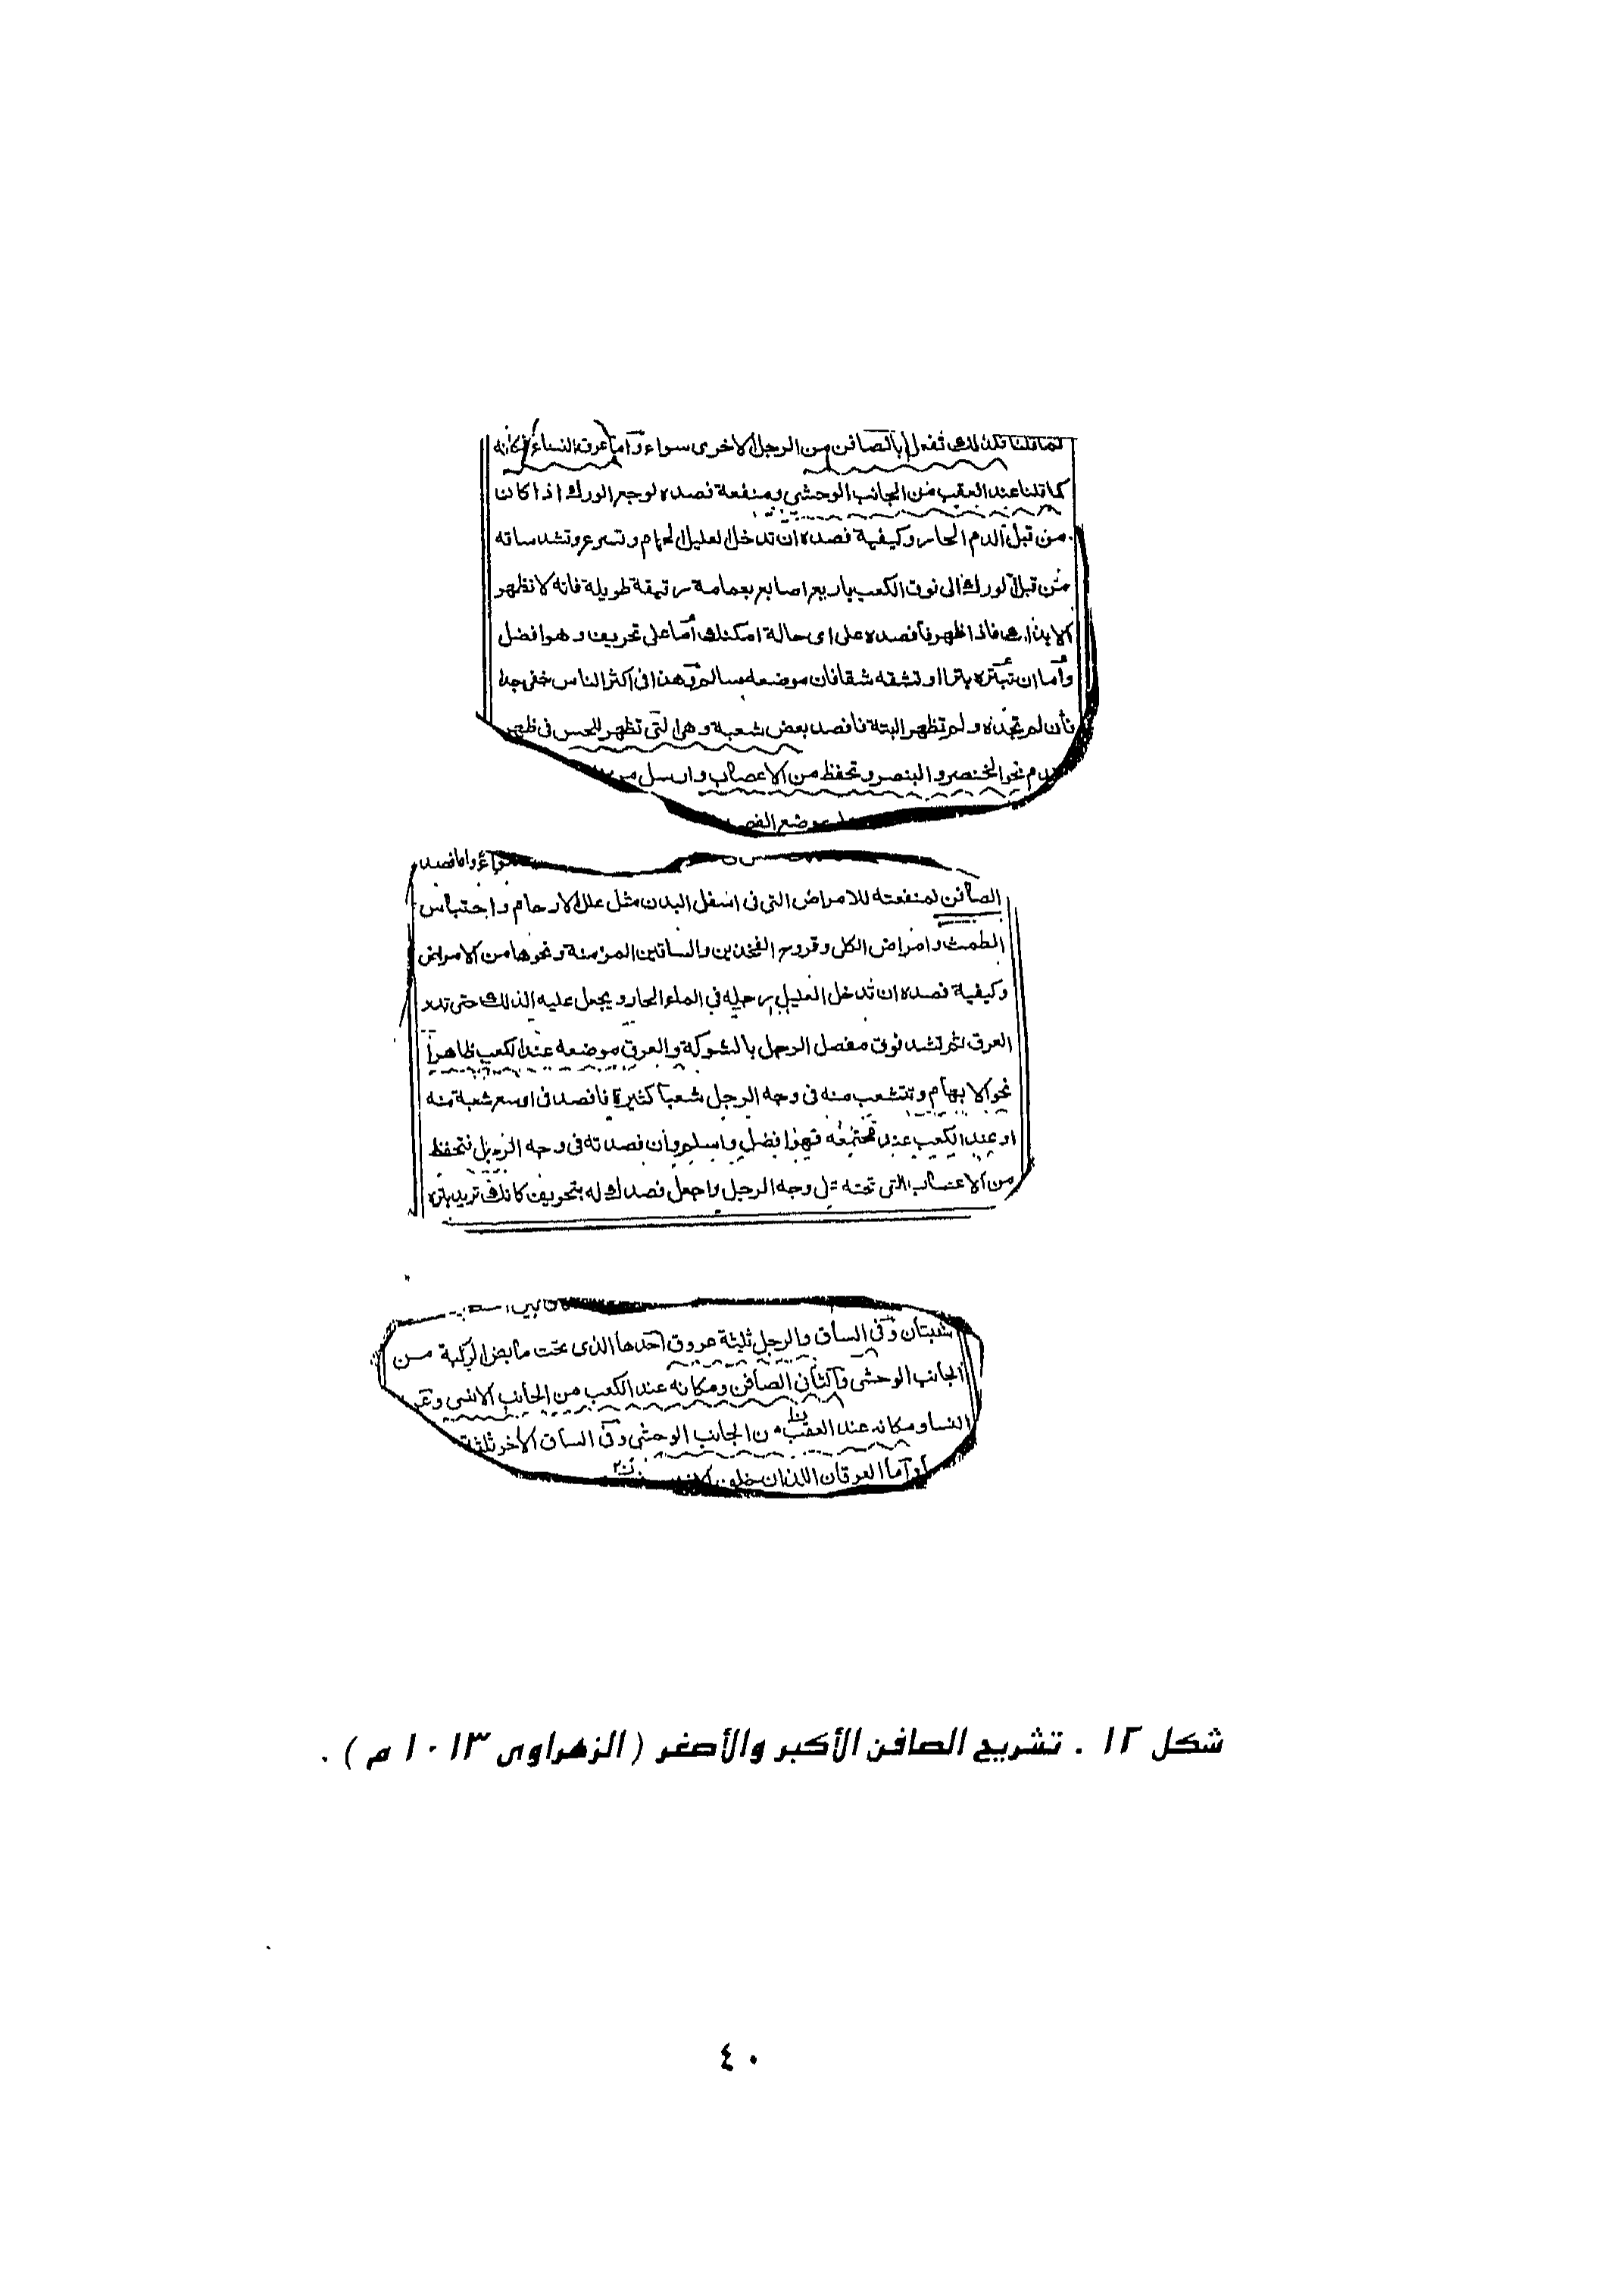 كذلك تفعل بالصافن من الرجل الاخرى سواء وأما عرق النساء فكانه
كما قلنا عند العقب من الجانب الوحشي ومنفعة فصده لوجع الورك اذا كان
من قبل الدم الحار وكيفية فصده ان تدخل العليل الحمام وتسرع وتشد ساقه
من قبل الورك الى فوق الكعب باربع اصابع بعمامة رقيقة طويلة فانه لا تظهر
الا بذلك فاذا ظهر فافصده على اى حالة امكنك أما على تحريف وهو افضل
وأما ان تبتره بترا او تشقه شقا فان موضعه سالم وهذا فى اكثر الناس خفى جدا
فأن لم تجده ولم تظهر البتة فافصد بعض شعبه وهى التى تظهر للحس فى ظهر
نحو الخنصر والبنصر وتحفظ من الاعصاب وارسل من
موضع الفصد
سواء واما فصد
الصافن لمنفعته للامراض التى فى اسفل البدن مثل علل الارحام واحتباس
الطمث وامراض الكلى وقروح الفخذين والساقين المزمنة ونحوها من الامراض
وكيفية فصده ان تدخل العليل رجليه في الماء الحار ويجعل عليه الدلك حتى تدر
العرق ثم تشد فوق مفصل الرجل بالشوكة والعرق موضعه عند الكعب ظاهرا
نحو الابهام وتتشعب منه فى وجه الرجل شعبا كثيرة فافصد فى اوسع شعبة منه
او عند الكعب عند مجتمعه فهو افضل واسلم وأن فصدته فى وجه الرجل فتحفظ
من الاعصاب التى تحته على وجه الرجل واجعل فصدك له بتحويف كانك تريد بتره
شبتان وفى الساق والرجل ثلثة عروق احدها الذى تحت مأبض الركبة من
الجانب الوحشى والثانى الصافن ومكانه عند الكعب من الجانب الانسى وعرق
النسا ومكانه عند العقب من الجانب الوحشى وفى الساق الأخر ثلثة
وأما العرقان اللذان خلف
شكل ١٢ . تشريح الصافن الأكبر والأصغر ( الزهراوى ١٠١٣ م ) .
٤٠